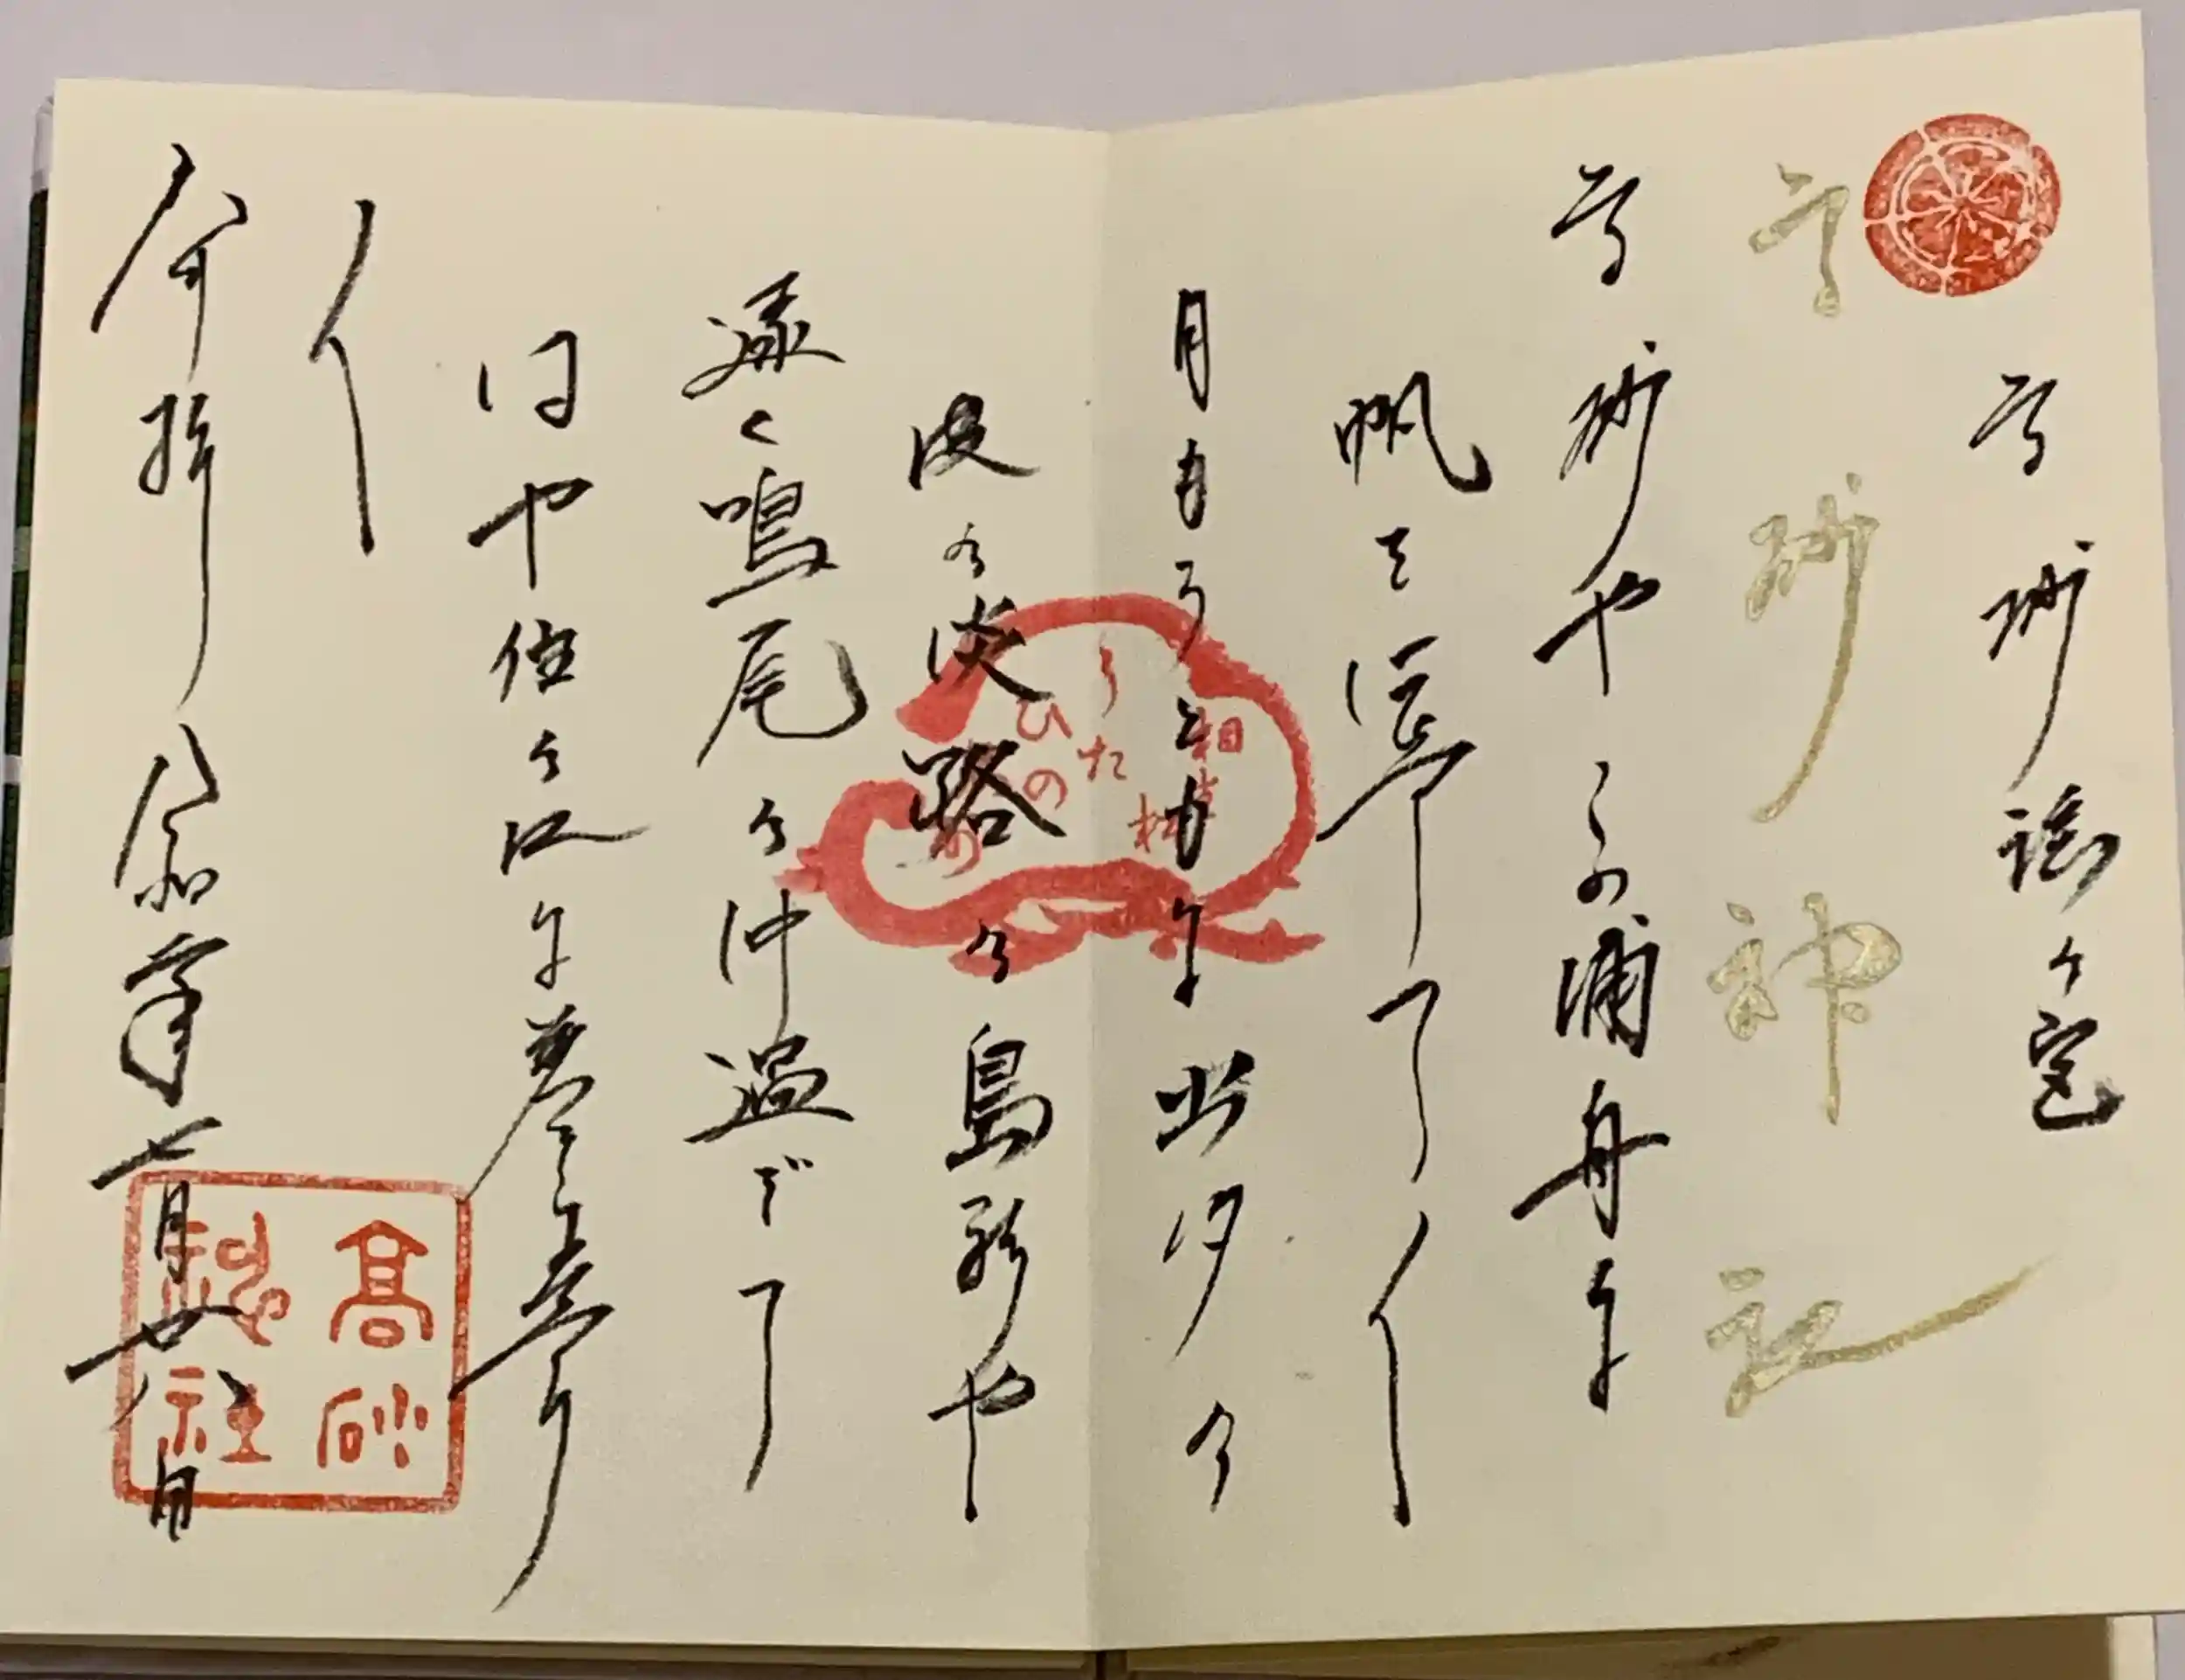 高砂謡の宮
高砂神社
高砂やこの浦舟に
帆を揚げて〱
月もろともに出汐の
波の淡路の島影や
遠く鳴尾の沖過ぎて
はや住の江に着きにけり
〱
奉拝 令和 年七月廿八日
相
ひ
た
の
高砂
神社